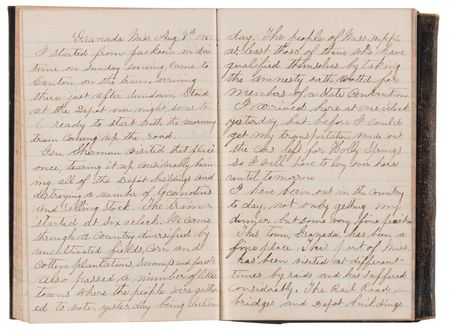 Granada Miss Aug 8th 1865
I started from Jackson in due
time on Sunday evening came to
Canton on the train, arriving
there just after sundown, Staid
at the Depot over night so as to
be ready to start with the morning
train coming up the road.
Gen. Sherman visited that place
once, tearing it up considerably, burn
ing all of the Depot buildings and
destroying a number of Locomotives
and rolling stock. The train
started at six oclock. We came
through a country diversified by
uncultivated fields, corn and
cotton plantations, swamp and forests
also passed a number of little
towns where the people were gathered
ed to vote, yesterday being election
day. The people of Mississippi
at least those of them who have
qualified themselves by taking
the amnesty oath voted for
members of a State Convention
I arrived here at one oclock
yesterday but before I could
get my transportation made out
the cars left for Holly Springs
so I will have to lay over here
until to morrow
I have been out in the country
to day, not only getting my
dinner but some very fine peaches
This town, Granada, has been a
fine place. This part of Miss.
has been visited at different
times by raids and has suffered
considerably. The Rail Road
bridges and Depot buildings